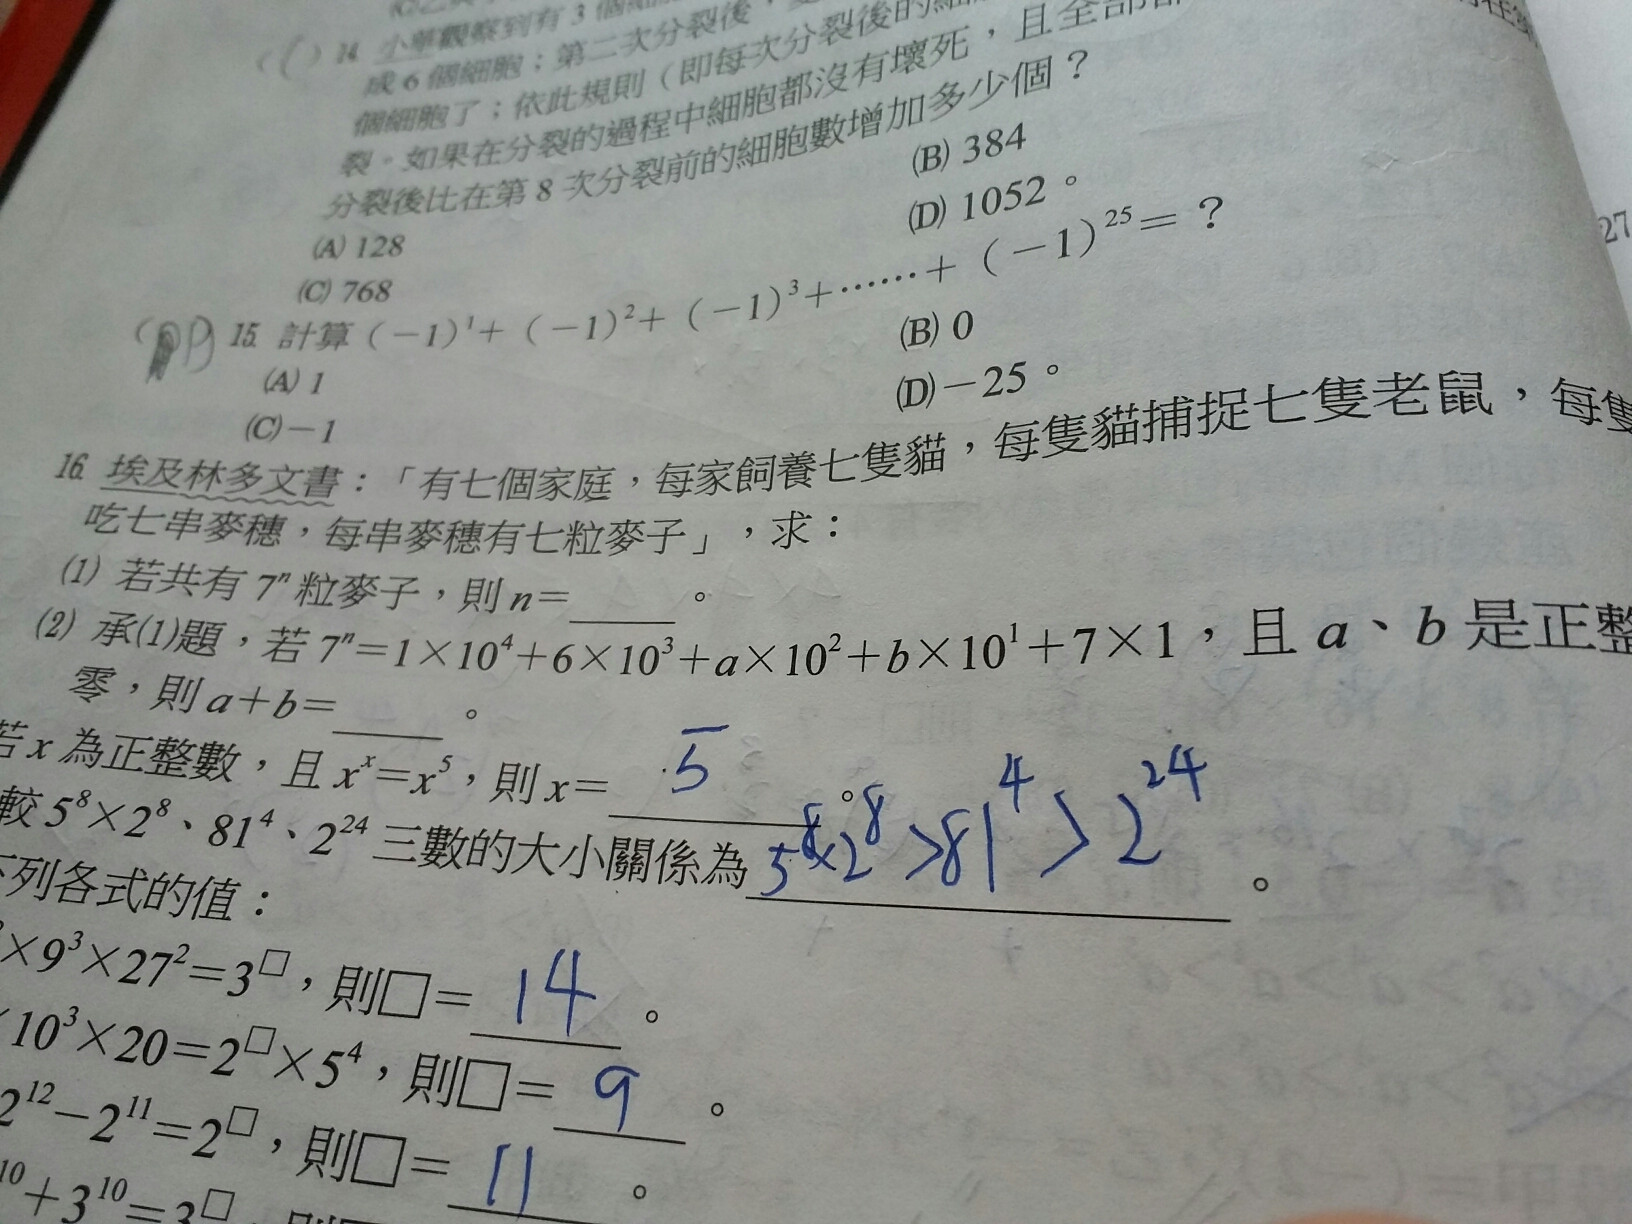 14. 小華觀察到有3個細
成6個細胞；第二次分裂後，
個細胞了；依此規則（即每次分裂後的細
裂。如果在分裂的過程中細胞都沒有壞死，且全部都
分裂後比在第8次分裂前的細胞數增加多少個？
(A) 128 (B) 384
(C) 768 (D) 1052。
15. 計算（－1）¹＋（－1）²＋（－1）³＋……＋（－1）²⁵＝？
(A) 1 (B) 0
(C)－1 (D)－25。
16. 埃及林多文書：「有七個家庭，每家飼養七隻貓，每隻貓捕捉七隻老鼠，每隻
吃七串麥穗，每串麥穗有七粒麥子」，求：
(1) 若共有 7ⁿ 粒麥子，則 n＝ 。
(2) 承(1)題，若 7ⁿ＝1×10⁴＋6×10³＋a×10²＋b×10¹＋7×1，且 a、b 是正整
零，則 a＋b＝ 。
若 x 為正整數，且 xˣ＝x⁵，則 x＝ 5 。
較 5⁸×2⁸、81⁴、2²⁴ 三數的大小關係為 5⁸×2⁸ > 81⁴ > 2²⁴ 。
下列各式的值：
×9³×27²＝3□，則□＝ 14 。
10³×20＝2□×5⁴，則□＝ 9 。
2¹²－2¹¹＝2□，則□＝ 11 。
¹⁰＋3¹⁰＝3□，則
27